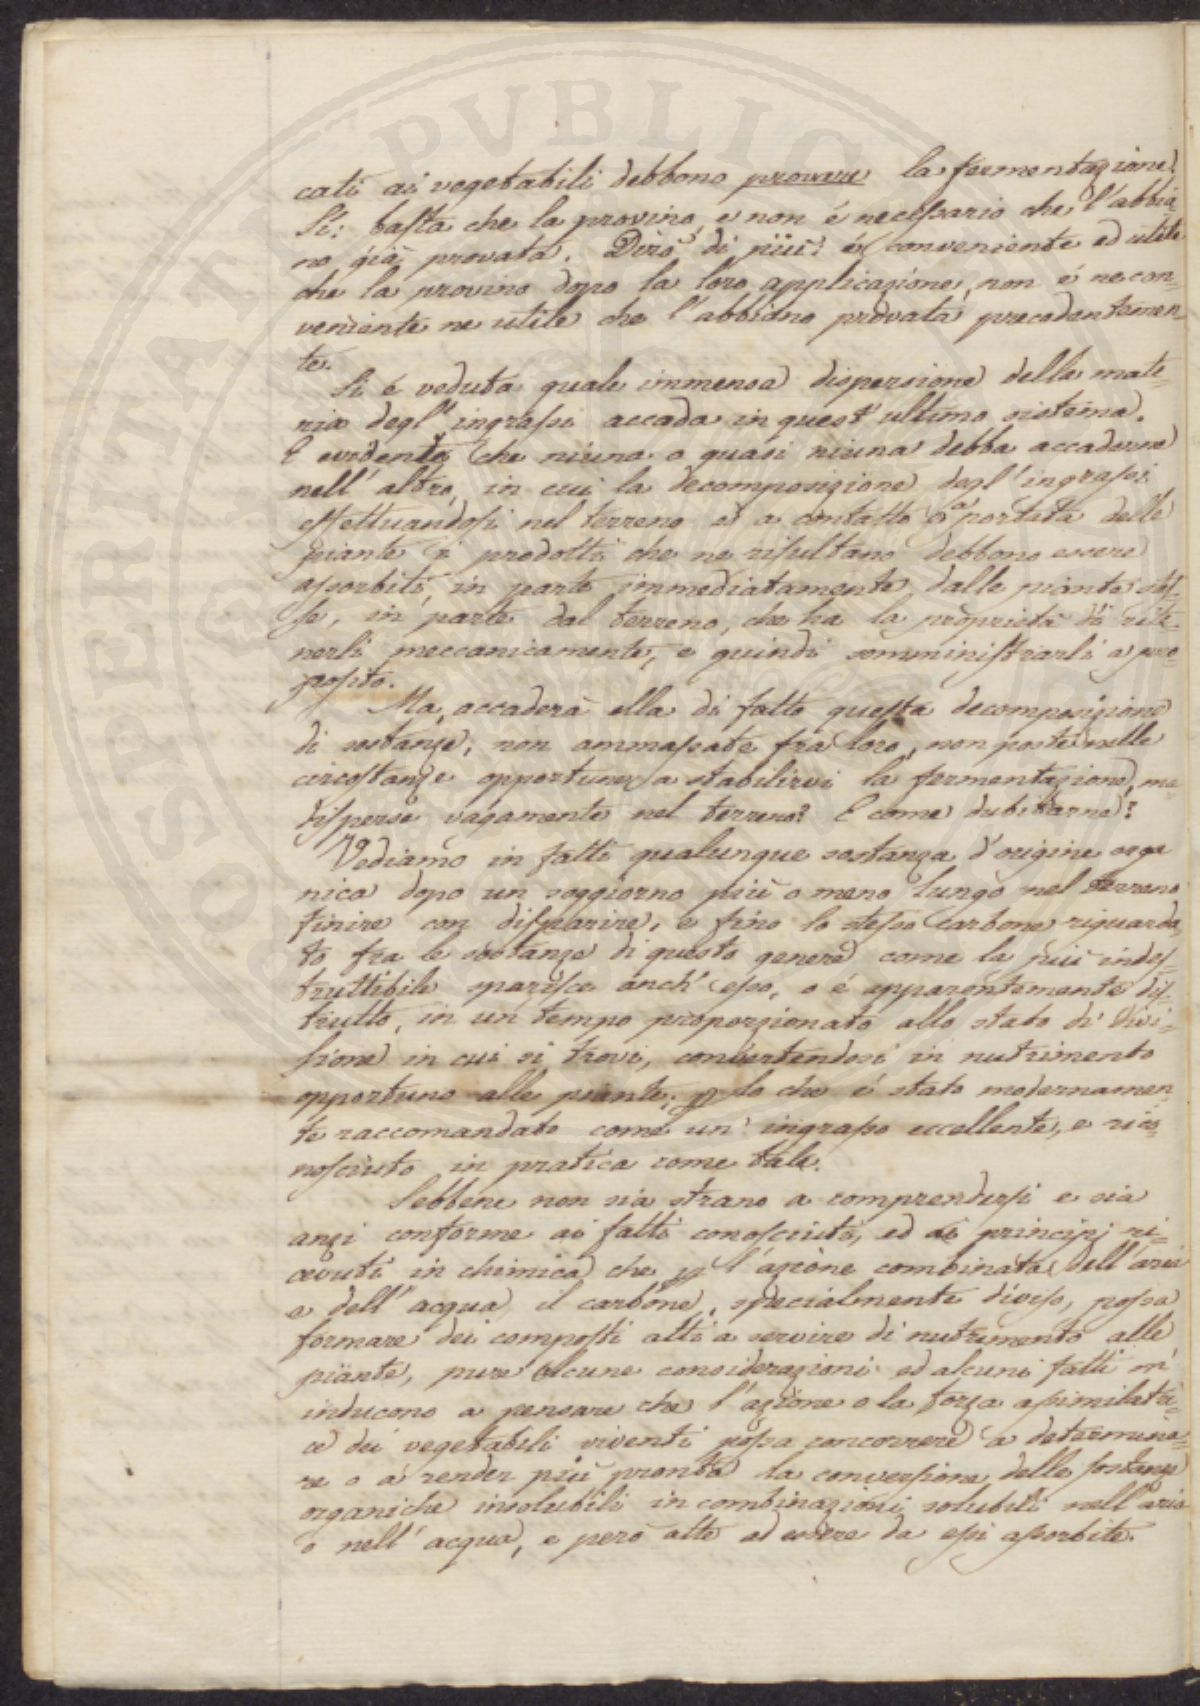 cati ai vegetabili debbono provare la fermentazione.
Si: basta che la provino, e non é necessario che l'abbia-
no giá provata. Dirò di piú: é conveniente ed utile
che la provino dopo la loro applicazione, non é ne con-
veniente ne utile che l'abbiano provata precedentemen-
te.
Si é veduta quale immensa dispersione della mate-
ria degl'ingrassi accada in quest'ultimo sistema.
E evidente che niuna o quasi niuna debba accaderne
nell'altro, in cui la decomposizione degl'ingrassi
effettuandosi nel terreno ed a contatto o a portata delle
piante i prodotti che ne risultano debbono essere
assorbiti, in parte immediatamente dalle piante stes-
se, in parte dal terreno, che ha la proprietá di rite-
nerli meccanicamente, e quindi somministrarli a pro-
posito.
Ma accaderá ella di fatto questa decomposizione
di sostanze, non ammassate fra loro, non poste nelle
circostanze opportune a stabilirvi la fermentazione, ma
disperse vagamente nel terreno? E come dubitarne?
Vediamo in fatti qualunque sostanza d'origine orga
nica dopo un soggiorno piú o meno lungo nel terreno
finire con disparire, e fino lo stesso carbone riguarda
to fra le sostanze di questo genere come la piú indes-
truttibile sparisce anch'esso, o é apparentemente dis-
trutto, in un tempo proporzionato allo stato di divi-
sione in cui si trovi, convertendosi in nutrimento
opportuno alle piante; p lo che é stato modernamen-
te raccomandato come un'ingrasso eccellente, e rico-
nosciuto in pratica come tale.
Sebbene non sia strano a comprendersi e sia
anzi conforme ai fatti conosciuti, ed ai principj ri-
cevuti in chimica che p l'azione combinata dell'aria
e dell'acqua il carbone, specialmente diviso, possa
formare dei composti atti a servire di nutrimento alle
piante, pure alcune considerazioni ed alcuni fatti m'
inducono a pensare che l'azione o la forza assimilatri-
ce dei vegetabili viventi possa concorrere a determina-
re o a render piú pronta la conversione delle sostanze
organiche insolubili in combinazioni solubili nell'aria
o nell'acqua, e peró atte ad essere da essi assorbite.